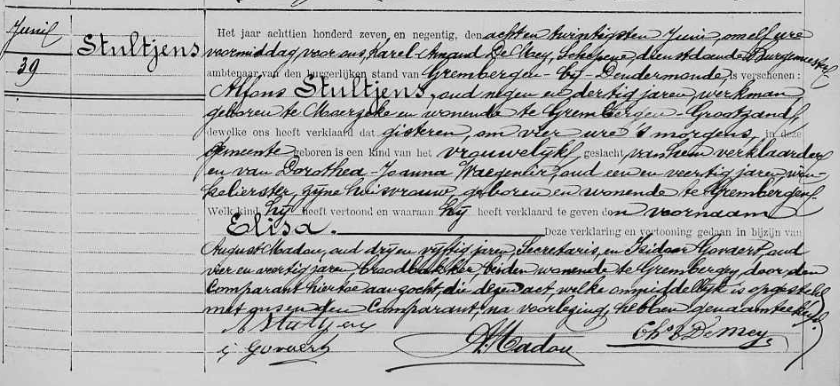 Junij
39
Stultjens
Het jaar achttien honderd zeven en negentig, den achten twintigsten Junij, om elf ure
voormiddag voor ons, Karel-Amand De Mey, Schepene dienstdoende Burgemeester
ambtenaar van den burgerlijken stand van Grembergen-bij-Dendermonde, is verschenen:
Alfons Stultjens, oud negen en dertig jaren, werkman
geboren te Moerzeke en wonende te Grembergen-Grootzand,
dewelke ons heeft verklaard dat gisteren, om vier ure 's morgens, in deze
gemeente geboren is een kind van het vrouwelijk geslacht van hem verklaarder
en van Dorothea-Joanna Waegenlir oud een en veertig jaren, win-
kelierster, zijne huisvrouw, geboren en wonende te Grembergen.
Welk kind hij heeft vertoond en waaraan hij heeft verklaard te geven den voornaam
Elisa. Deze verklaring en vertooning gedaan in bijzijn van
August Madou, oud drij en vijftig jaren, Secretaris, en Isidoor Govaert, oud
vier en veertig jaren, broodbakker beiden wonende te Grembergen, door den
Comparant hiertoe aangezocht, die dezen act, welke onmiddelijk is opgesteld
met ons en den Comparant, na voorlezing, hebben genaamteekend.
A Stultjens
i Govaert
A. Madou
Chs De Mey